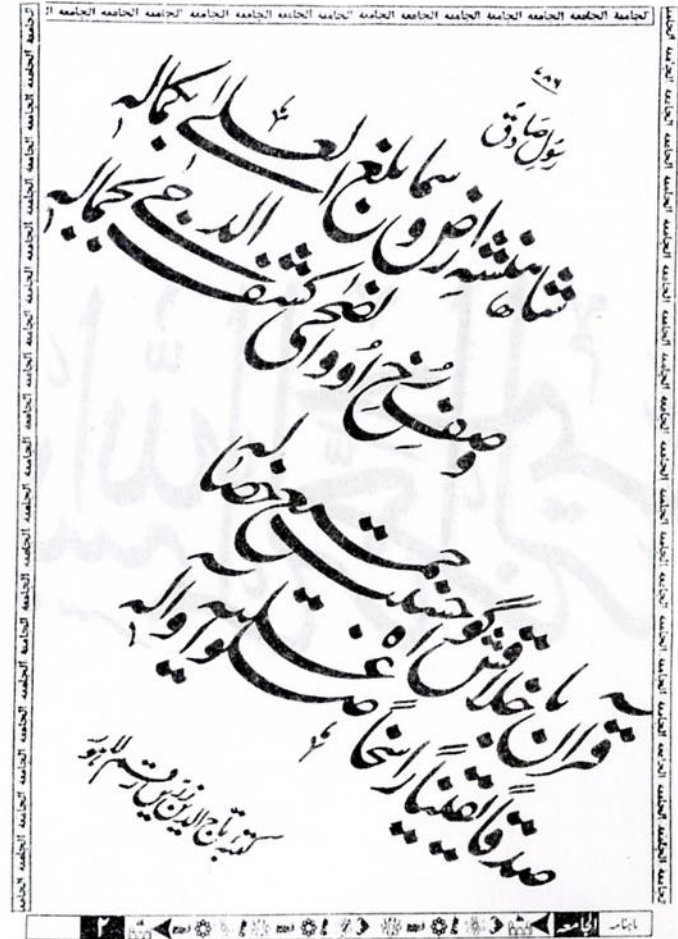 الجامعه الجامعه الجامعه الجامعه الجامعه الجامعه الجامعه الجامعه الجامعه الجامعه الجامعه الجامعه الجامعه الجامعه
۷۸۶
رسولِ صادق
شاہنشہِ ارض و سما بلغ العلےٰ بکمالہ
وصفِ رُخِ اُو والضحیٰ کشف الدجیٰ بجمالہ
قرآن باخلاقش گواہ حسنت جمیع خصالہ
صدقاً یقیناً راسخاً صلوا علیہ وآلہ
کتبہ تاج الدین زریں رقم لاہور
ماہنامہ الجامعہ ۲